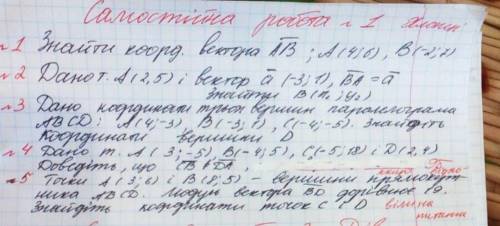 Самостійна робота №1
№1 Знайти коорд. вектора AB; A(4;6), B(-2;7)
№2 Дано т. A(2,5) і вектор a(-3;1), BA = a
Знайти B(x₁; y₂)
№3 Дано координати трьох вершин паралелограма
ABCD: A(4;-3) B(-3;1), C(-4;-5). Знайдіть
Координати вершини D
№4 Дано т. A(3;-5) B(-4;5), C(-5;18) і D(2,4)
Доведіть, що
5 Точки A(3;6) і B(8;5) – вершини прямокут-
ника ABCD. Модуль вектора BD дорівнює 19.
Знайдіть координати точок C і D